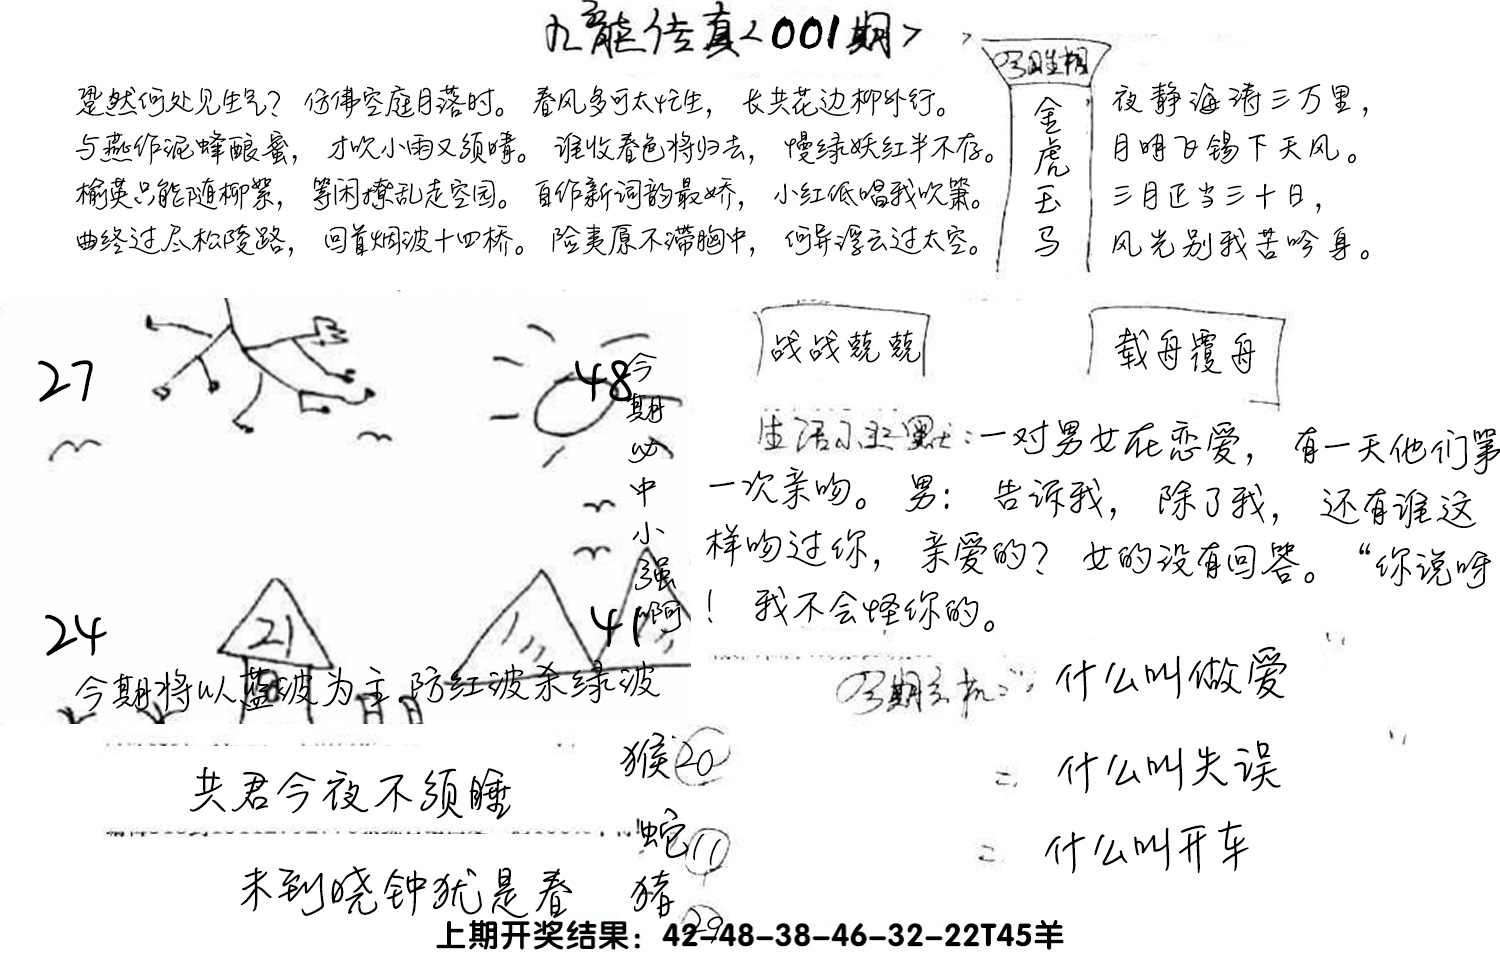 九龙传真<001期>
跫然何处见生气？仿佛空庭月落时。春风多可太忙生，长共花边柳外行。
与燕作泥蜂酿蜜，才吹小雨又须晴。谁收春色将归去，慢绿妖红半不存。
榆荚只能随柳絮，等闲撩乱走空园。自作新词韵最娇，小红低唱我吹箫。
曲终过尽松陵路，回首烟波十四桥。险夷原不滞胸中，何异浮云过太空。
今期生相
金虎玉马
夜静海涛三万里，
月明飞锡下天风。
三月正当三十日，
风光别我苦吟身。
27
48
24
21
41
今期必中小强啊
今期将以蓝波为主.防红波杀绿波
战战兢兢
载舟覆舟
生活小幽默：一对男女在恋爱，有一天他们第
一次亲吻。男：告诉我，除了我，还有谁这
样吻过你，亲爱的？女的没有回答。“你说呀
！我不会怪你的。
今期玄机：什么叫做爱
= 什么叫失误
= 什么叫开车
共君今夜不须睡
未到晓钟犹是春
猴20
蛇11
猪29
上期开奖结果：42-48-38-46-32-22T45羊